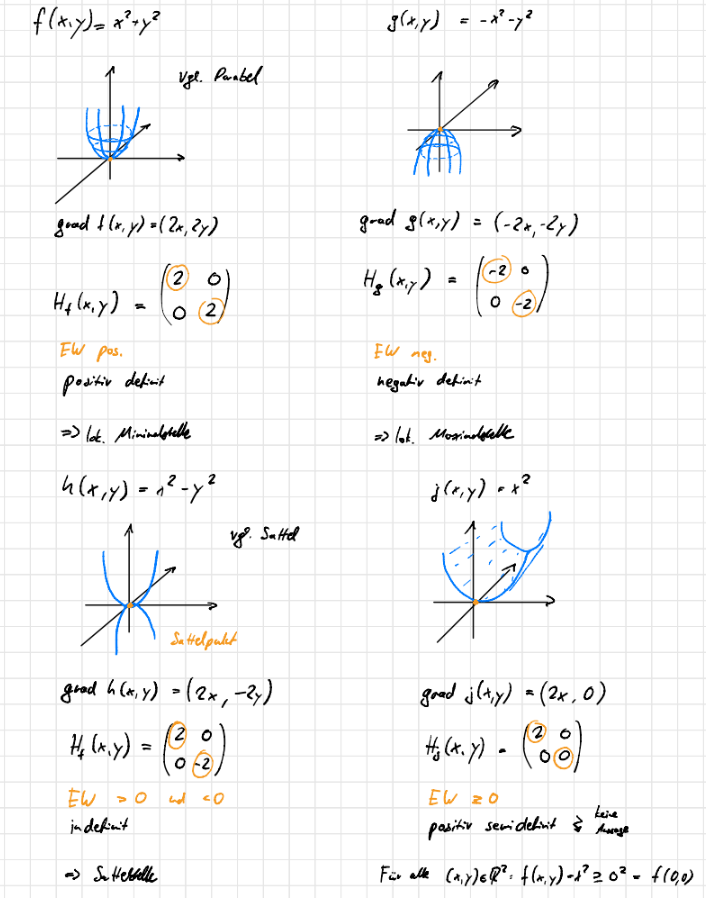 f(x,y) = x² + y²
vgl. Parabel
grad f(x,y) = (2x, 2y)
H_f (x,y) = (2 0
0 2)
EW pos.
positiv definit
=> lok. Minimalstelle
g(x,y) = -x² - y²
grad g(x,y) = (-2x, -2y)
H_g (x,y) = (-2 0
0 -2)
EW neg.
negativ definit
=> lok. Maximalstelle
h(x,y) = x² - y²
vgl. Sattel
Sattelpunkt
grad h(x,y) = (2x, -2y)
H_f (x,y) = (2 0
0 -2)
EW > 0 und < 0
indefinit
=> Sattelstelle
j(x,y) = x²
grad j(x,y) = (2x, 0)
H_j (x,y) = (2 0
0 0)
EW ≥ 0
positiv semidefinit } keine
Aussage
Für alle (x,y) ∈ ℝ²: f(x,y) = x² ≥ 0² = f(0,0)